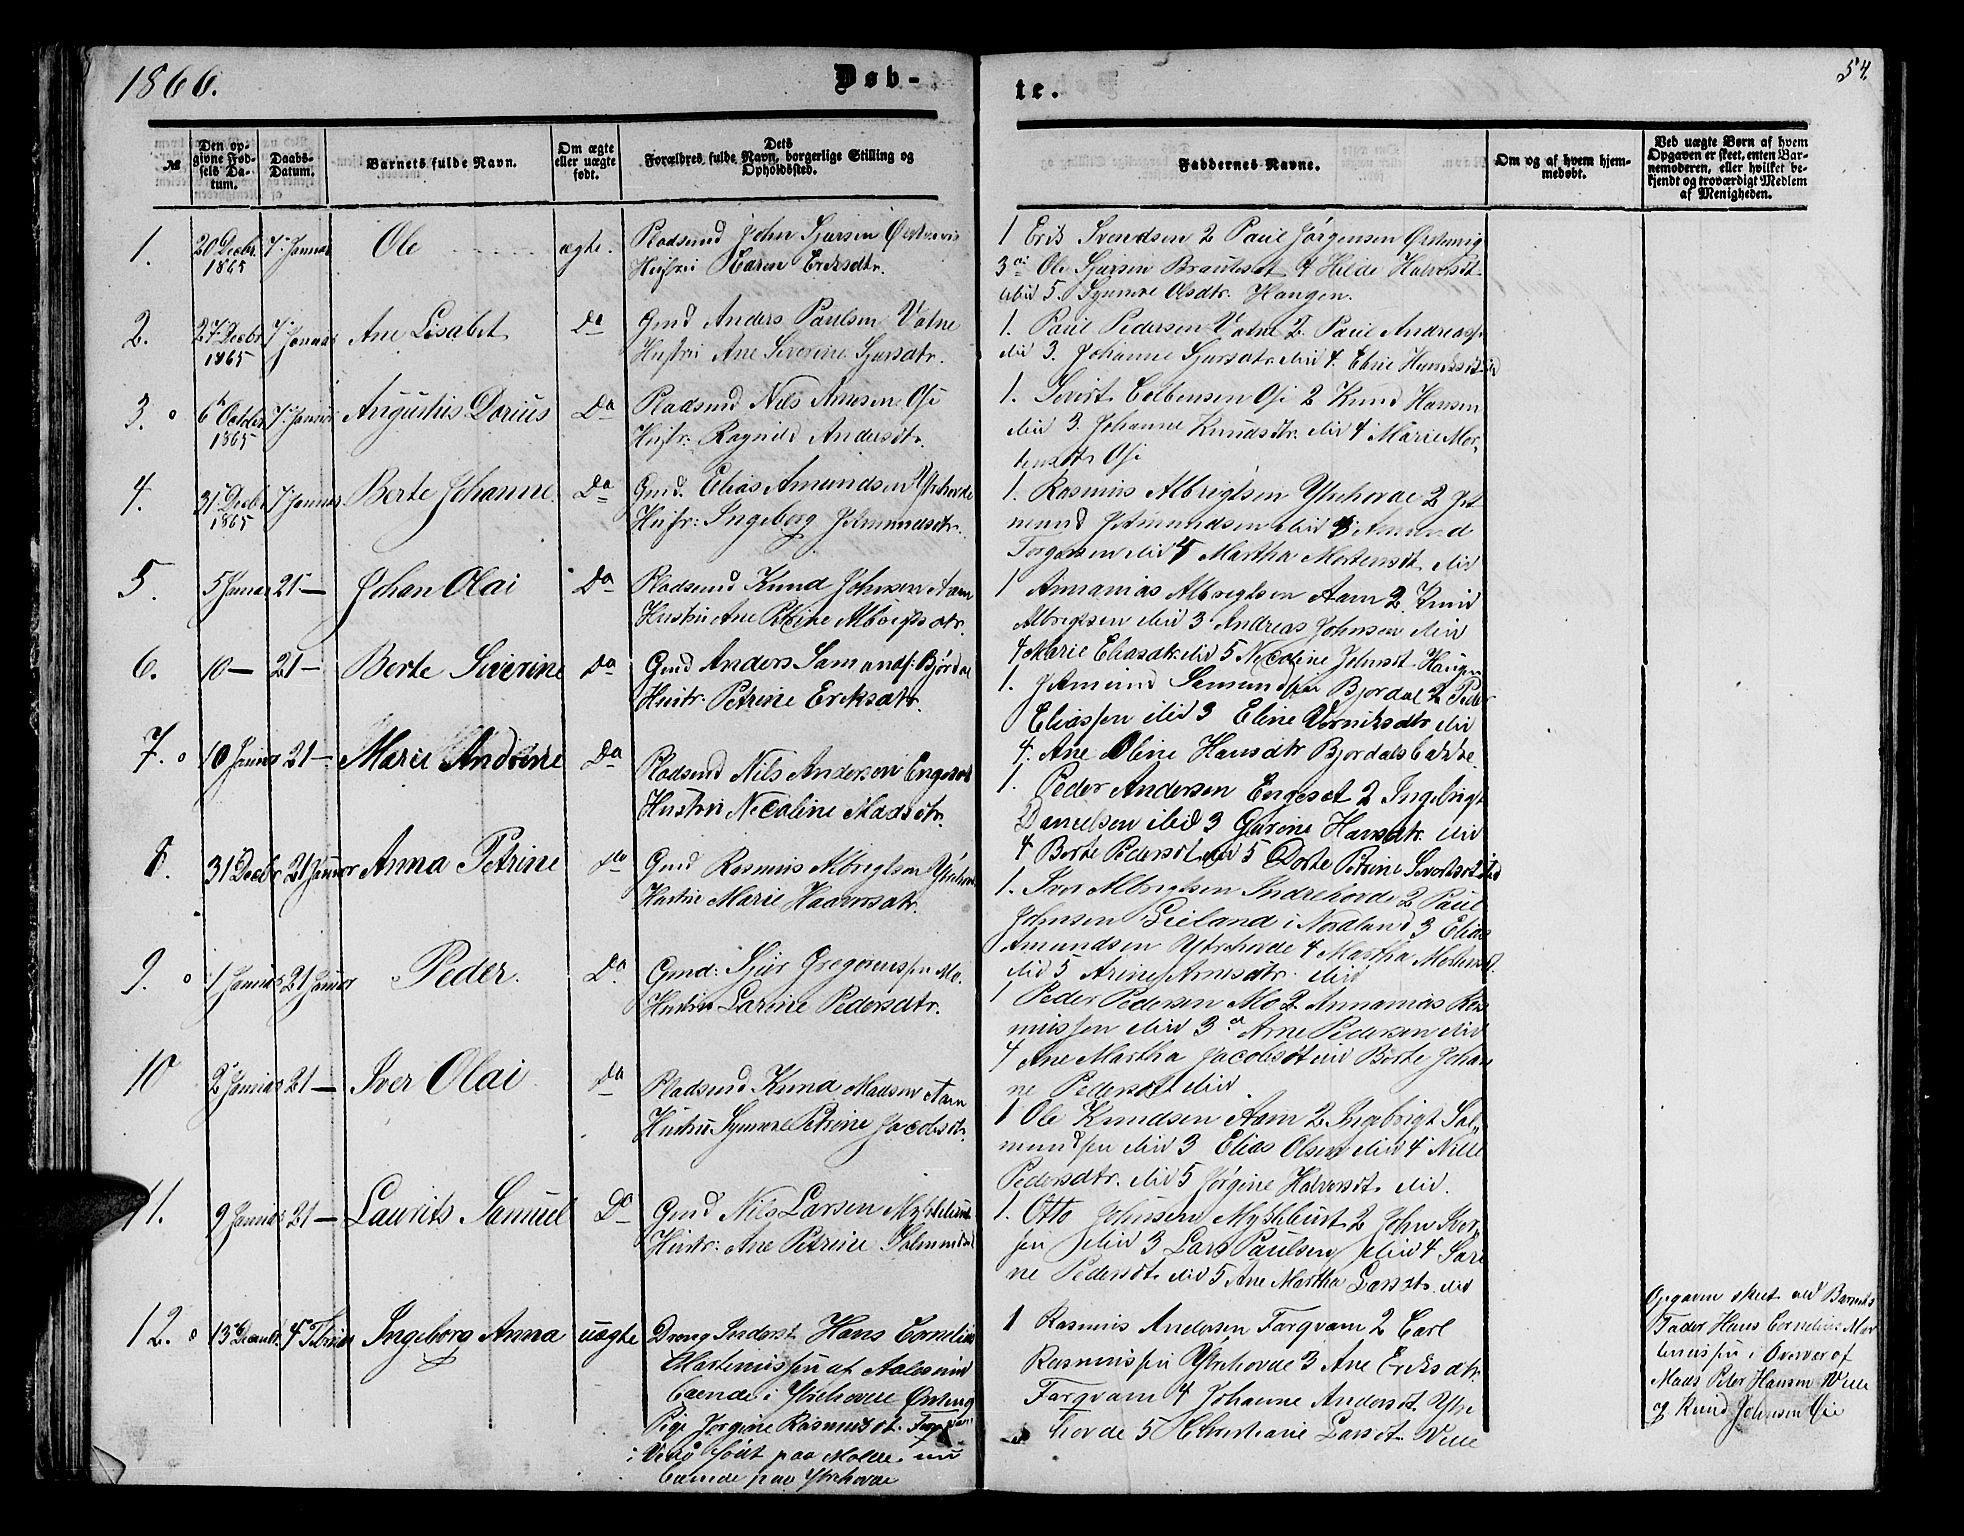 1866.
Døb-
te.
54.
№
Den op-
givne Fød-
sels Da-
tum.
Daabs-
Datum.
Barnets fulde Navn.
Om ægte
eller uægte
født.
Dets
Forældres fulde Navn, borgerlige Stilling og
Opholdssted.
Faddernes Navne.
Om og af hvem hjem-
medøbt.
Ved uægte Børn af hvem
Opgaven er skeet, enten Bar-
nemoderen, eller hvilket be-
kjendt og troværdigt Medlem
af Menigheden.
1.
20 Decbr
1865
7 Januar
Ole
ægte.
Pladsmd John Sjursen
Hustru Karen Eriksdtr.
1 Erik Svendsen 2 Paul Jørgensen Ørstenvig
3 Ole Sjursen Brauteset 4 Hilde Halversdt.
ibid 5. Synnøve Olsdtr. Haugen.
2.
27 Decbr
1865
7 Januar
Ane Lisabet
Do
Gmd Anders Paulsen Vatne
Hustru Ane Severine Sjursdtr.
1. Paul Pedersen Vatne 2. Paul Andreass.
ibid 3. Johanne Sjursdtr. ibid 4. Eline
3.
6 October
1865
7 Januar
Augustus Dorius
Do
Pladsmd Nils Arnesen Osi
Hustr. Ragnild Andersdtr.
1. Sivert Colbensen Osi 2 Knud Hansen
ibid 3. Johanne Knudsdtr. ibid 4 Marie Mor-
tensdtr Osi
4.
31 Decbr
1865
7 Januar
Berte Johanne
Do
Gmd. Elias Amundsen Ytrehovde
Hustr: Ingeborg Jetmundsdtr.
1. Rasmus Albrigtsen Ytrehovde 2 Jet-
mund Jetmundsen ibid 3 Amund
Torgersen ibid 4 Martha Mortensdt. ibid
5.
5 Januar
21 —
Johan Olai
Do
Pladsmd Knud Johnsen Aam
Hustru Ane Petrine Albrigtsdtr.
1 Annanias Albrigtsen Aam 2. Knud
Albrigtsen ibid 3 Andreas Johnsen ibid
4 Marie Eliasdtr. ibid 5 Nicoline Johnsdt. Haugen
6.
10 —
21 —
Berte Severine
Do
Gmd Anders Samunds. Bjørdal
Hustr. Petrine Eriksdtr.
1. Jetmund Semundsen Bjordal 2 Peder
Eliassen ibid 3 Eline ibid
4. Ane Oline Hansdtr Bjordalsbakke.
7.
10 Januar
21 —
Marie Andrine
Do
Pladsmd Nils Andersen Engeset
Hustru Nicoline Madsdtr.
1. Peder Andersen Engeset 2 Ingebrigt
Danielsen ibid 3 Gurine Hansdtr. ibid
4 Berte Pedersdt. ibid 5 Dorte Petrine Sivertsdt ibid
8.
31 Decbr
21 Januar
Anna Petrine
do
Gmd Rasmus Albrigtsen
Hustru Marie
1. Iver Albrigtsen Indrehovde 2 Paul
Johnsen i Nordland 3 Elias
Amundsen Ytrehovde 4 Martha Mortensdt.
ibid 5 Arnesdtr. ibid
9.
1 Januar
21 Januar
Peder.
Do.
Gmd: Sjur Gregoriussen Mo.
Hustru Larine Pedersdtr.
1 Peder Pedersen Mo 2 Annanias Ras-
mussen ibid 3 Arne Pedersen ibid
4 Ane Martha Jacobsdt ibid Berte Johan-
ne Pedersdt ibid
10
2 Januar
21 —
Iver Olai
do
Pladsmd Knud Madsen Aam
Hustru Synnøve Petrine Jacobsdt.
1 Ole Knudsen Aam 2 Ingebrigt Sal-
mundsen ibid 3 Elias Olsen ibid 4 Nille
Pedersdtr. ibid 5 Jørgine Halversdt. ibid.
11.
9 Januar
21 —
Laurits Samuel
Do
Gmd Nils Larsen Myklebust
Hustr: Ane Petrine
1. Otto Johnsen Myklebust 2 John
sen ibid 3 Lars Paulsen ibid 4
ne Pedersdt. ibid 5 Ane Martha Larsdt. ibid
12.
13 Decembr.
4 Febr.
Ingeborg Anna
uægte
Dreng Hans Cornelius
Martinussen af Aalesund
boende i Ytrehovde Ørsteng
Pige Jørgine Rasmusdt.
født paa Molde, nu
boende paa Ytrehovde
1 Rasmus Andersen Forqvam 2 Carl
Rasmussen Ytrehovde 3 Ane Eriksdtr.
Forqvam 4 Johanne Andersdt Ytre-
hovde 5 Christiane Larsdt. Velle
Opgaven skeet ved Barnets
Fader Hans Cornelius Mar-
tinussen i Overvær af
Mads Peter Hansen Velle
og Knud Johnsen